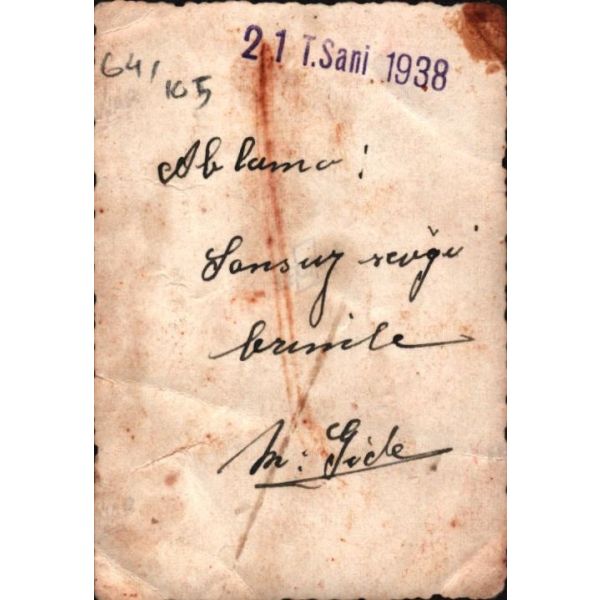 21 T.Sani 1938
641
105
Ablama:
Sonsuz sevgi
M: